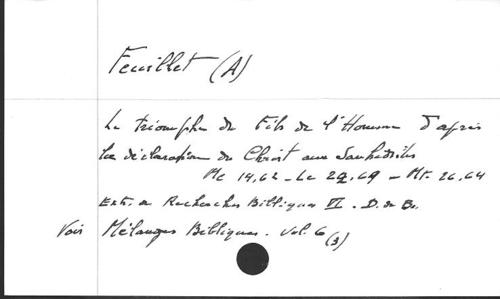 Feuillet (A)
Le triomphe du Fils de l'Homme d'après
la déclaration du Christ aux Sanhédrites
Mc 14,62 - Lc 22,69 - Mt. 26,64
Extr. de Recherches Bibliques VI. D. de Br.
Voir Mélanges Bibliques. Vol. 6 (3)